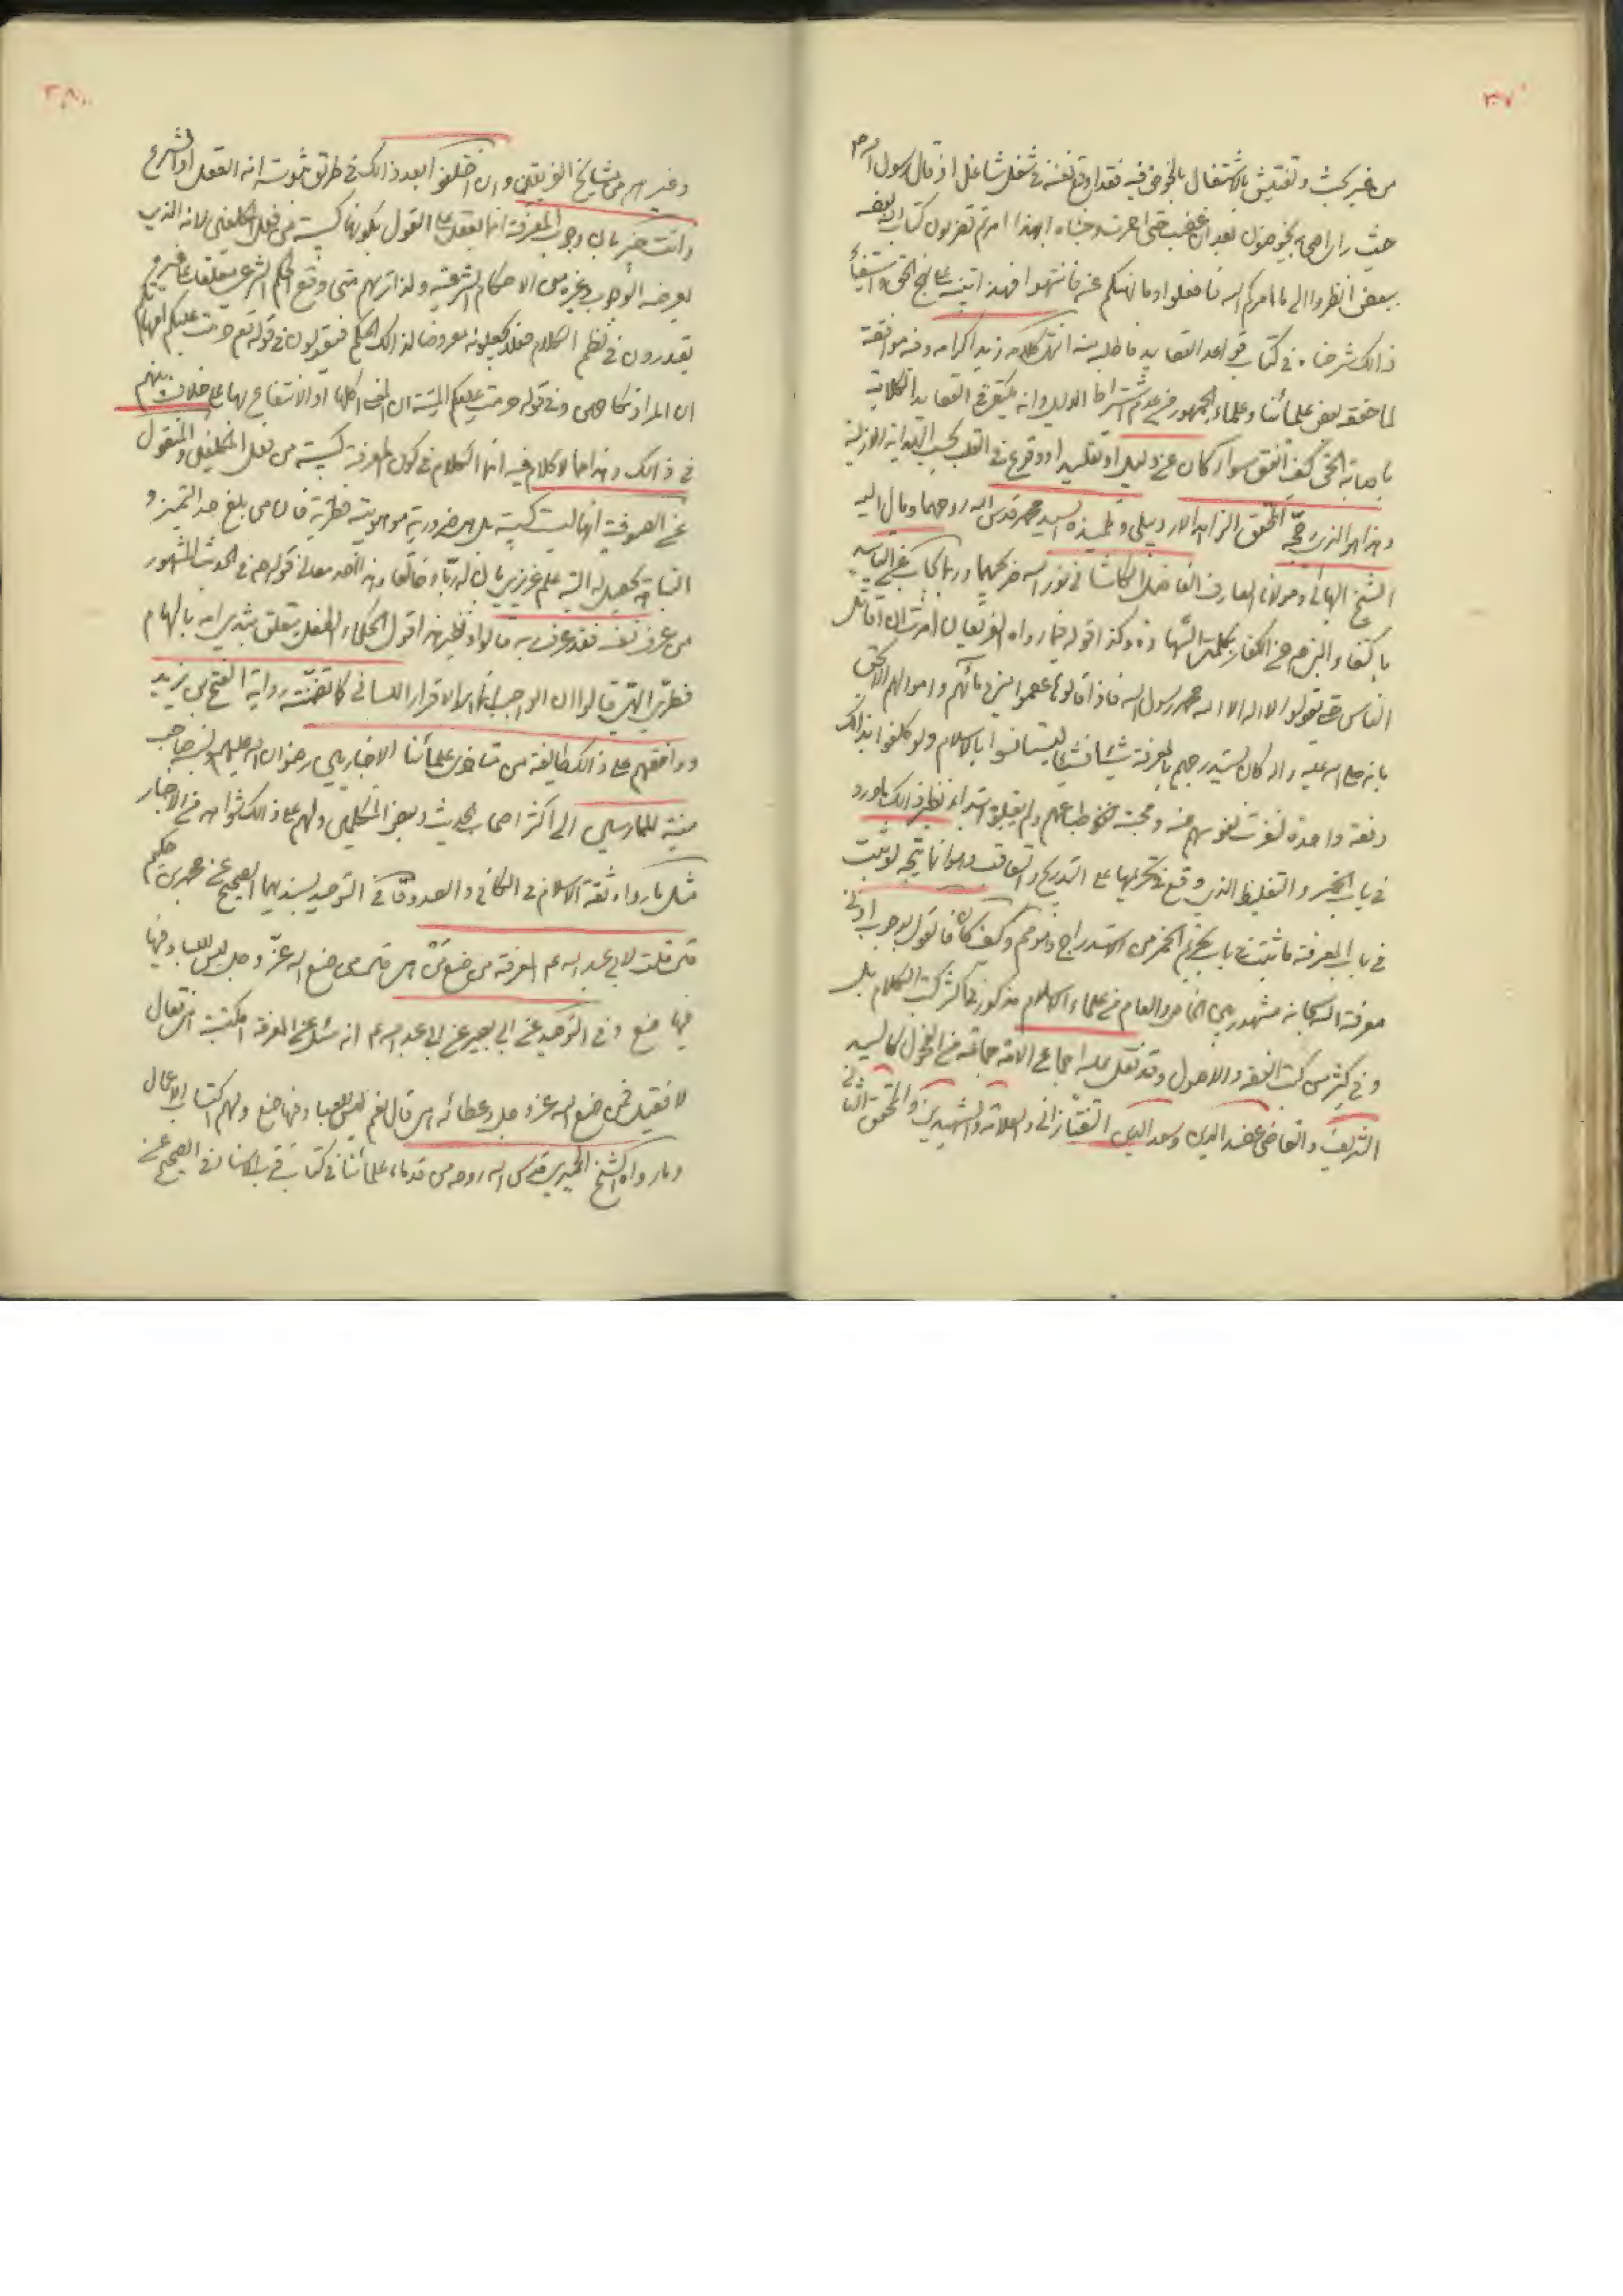 ٣٧
من غير بحث وتفتيش بالاشتغال بالخوض فيه فقد اوقع نفسه في شغل شاغل اذ قال رسول الله ص
حيث راى اصحابه يخوضون بعد ان غضب حتى احمرت وجنتاه ابهذا امرتم تضربون كتاب الله بعضه
ببعض انظروا الى ما امركم الله فافعلوا وما نهيكم عنه فانتهوا فهذا تنبيه على نهج الحق واستيفاء
ذالك شرحناه في كتاب قواعد العقايد فاطلبه منه انتهى كلامه زيد اكرامه وفيه موافقة
لما حققه بعض علمائنا وعلماء الجمهور من عدم اشتراط الدليل وانه يكتفى في العقايد الكلامية
باصابة الحق كيف اتفق سواء كان عن دليل او تقليد او وقوع في القلب بحسب الهداية الازلية
وهذا هو الذي رجحه المحقق الزاهد الاردبيلي وتلميذه السيد محمد قدس الله روحهما ومال اليه
الشيخ البهائي ومولانا العارف الفاضل الكاشاني نور الله ضريحهما وربما يجاب عن التأسيد
باكتفاء النبي ص من الكفار بكلمتي الشهادة وكذا قوله فيما رواه الفريقان امرت ان اقاتل
الناس حتى يقولوا لا اله الا الله محمد رسول الله فاذا قالوها عصموا مني دمائهم واموالهم الا بحق
بانه صلى الله عليه واله كان يستدرجهم بالمعرفة شيئا فشيئا ليستانسوا بالاسلام ولو كلفوا بذالك
دفعة واحدة لنفرت نفوسهم عنه ومجته طباعهم ولم يقبلوه ابتداء نظير ذالك ما ورد
في باب الخمر والتغليظ الذي وقع في تحريمها على التدريج والتعاقب وهو انما يتجه لو ثبت
في باب المعرفة ما ثبت في باب تحريم الخمر من الاستدراج وكيف كان فالقول بوجوب
معرفة الله سبحانه مشهور بين الخاص والعام من علماء الاسلام مذكور في اكثر كتب الكلام بل
وفي كثير من كتب الفقه والاصول وقد نقل عليه اجماع الامة جماعة من الفحول كالسيد
الشريف والقاضي عضد الدين وسعد الدين التفتازاني والعلامة والشهيدين والمحقق الثاني
٣٨
وغيرهم من مشايخ الفريقين وان اختلفوا بعد ذالك في طريق ثبوته انه العقل او الشرع
وانت خبير بان وجوب المعرفة انما يعقل على القول بكونها كسبية من فعل المكلفين لانه الذي
يعرضه الوجوب وغيره من الاحكام الشرعية ولذا تريهم متى وقع الحكم الشرعي متعلقا على غيره
يقدرون في نظم الكلام فعلا يجعلونه معروضا لذالك الحكم فيقولون في قوله تعم حرمت عليكم امهاتكم
ان المراد نكاحهن وفي قوله حرمت عليكم الميتة ان المعنى اكلها او الانتفاع بها على خلاف بينهم
في ذالك وهذا مما لا كلام فيه انما الكلام في كون المعرفة كسبية من فعل المكلفين والمنقول
عن الصوفية انها ليست كسبية بل هي ضرورية موهوبية فطرية فان من بلغ حد التميز و
من عرف نفسه فقد عرف ربه قالوا ونظير هذا قول الحكماء الطفل يتعلق بثدي امه بالهام
فطري الهي قالوا ان الواجب انما هو الاقرار اللساني كما تضمنته رواية الفتح بن يزيد
ووافقهم على ذالك طائفة من متاخري علمائنا الاخباريين رضوان الله عليهم ونسبه صاحب
منية الممارسين الى اكثر اصحاب الحديث وبعض المتكلمين ولهم على ذالك شواهد من الاخبار
مثل ما رواه ثقة الاسلام في الكافي والصدوق في التوحيد بسنديهما الصحيح عن محمد بن حكيم
قال قلت لابي عبد الله عم المعرفة من صنع من هي قال من صنع الله عز وجل ليس للعباد فيها
فيها صنع وفي التوحيد عن ابي بصير عن ابي عبد الله عم انه سئل عن المعرفة امكتسبة هي فقال
لا فقيل فمن صنع الله عز وجل وعطائه هي قال نعم ليس للعباد فيها صنع ولهم اكتساب الاعمال
وما رواه الشيخ الحميري قدس الله روحه من قدماء علمائنا في كتاب قرب الاسناد في الصحيح عن